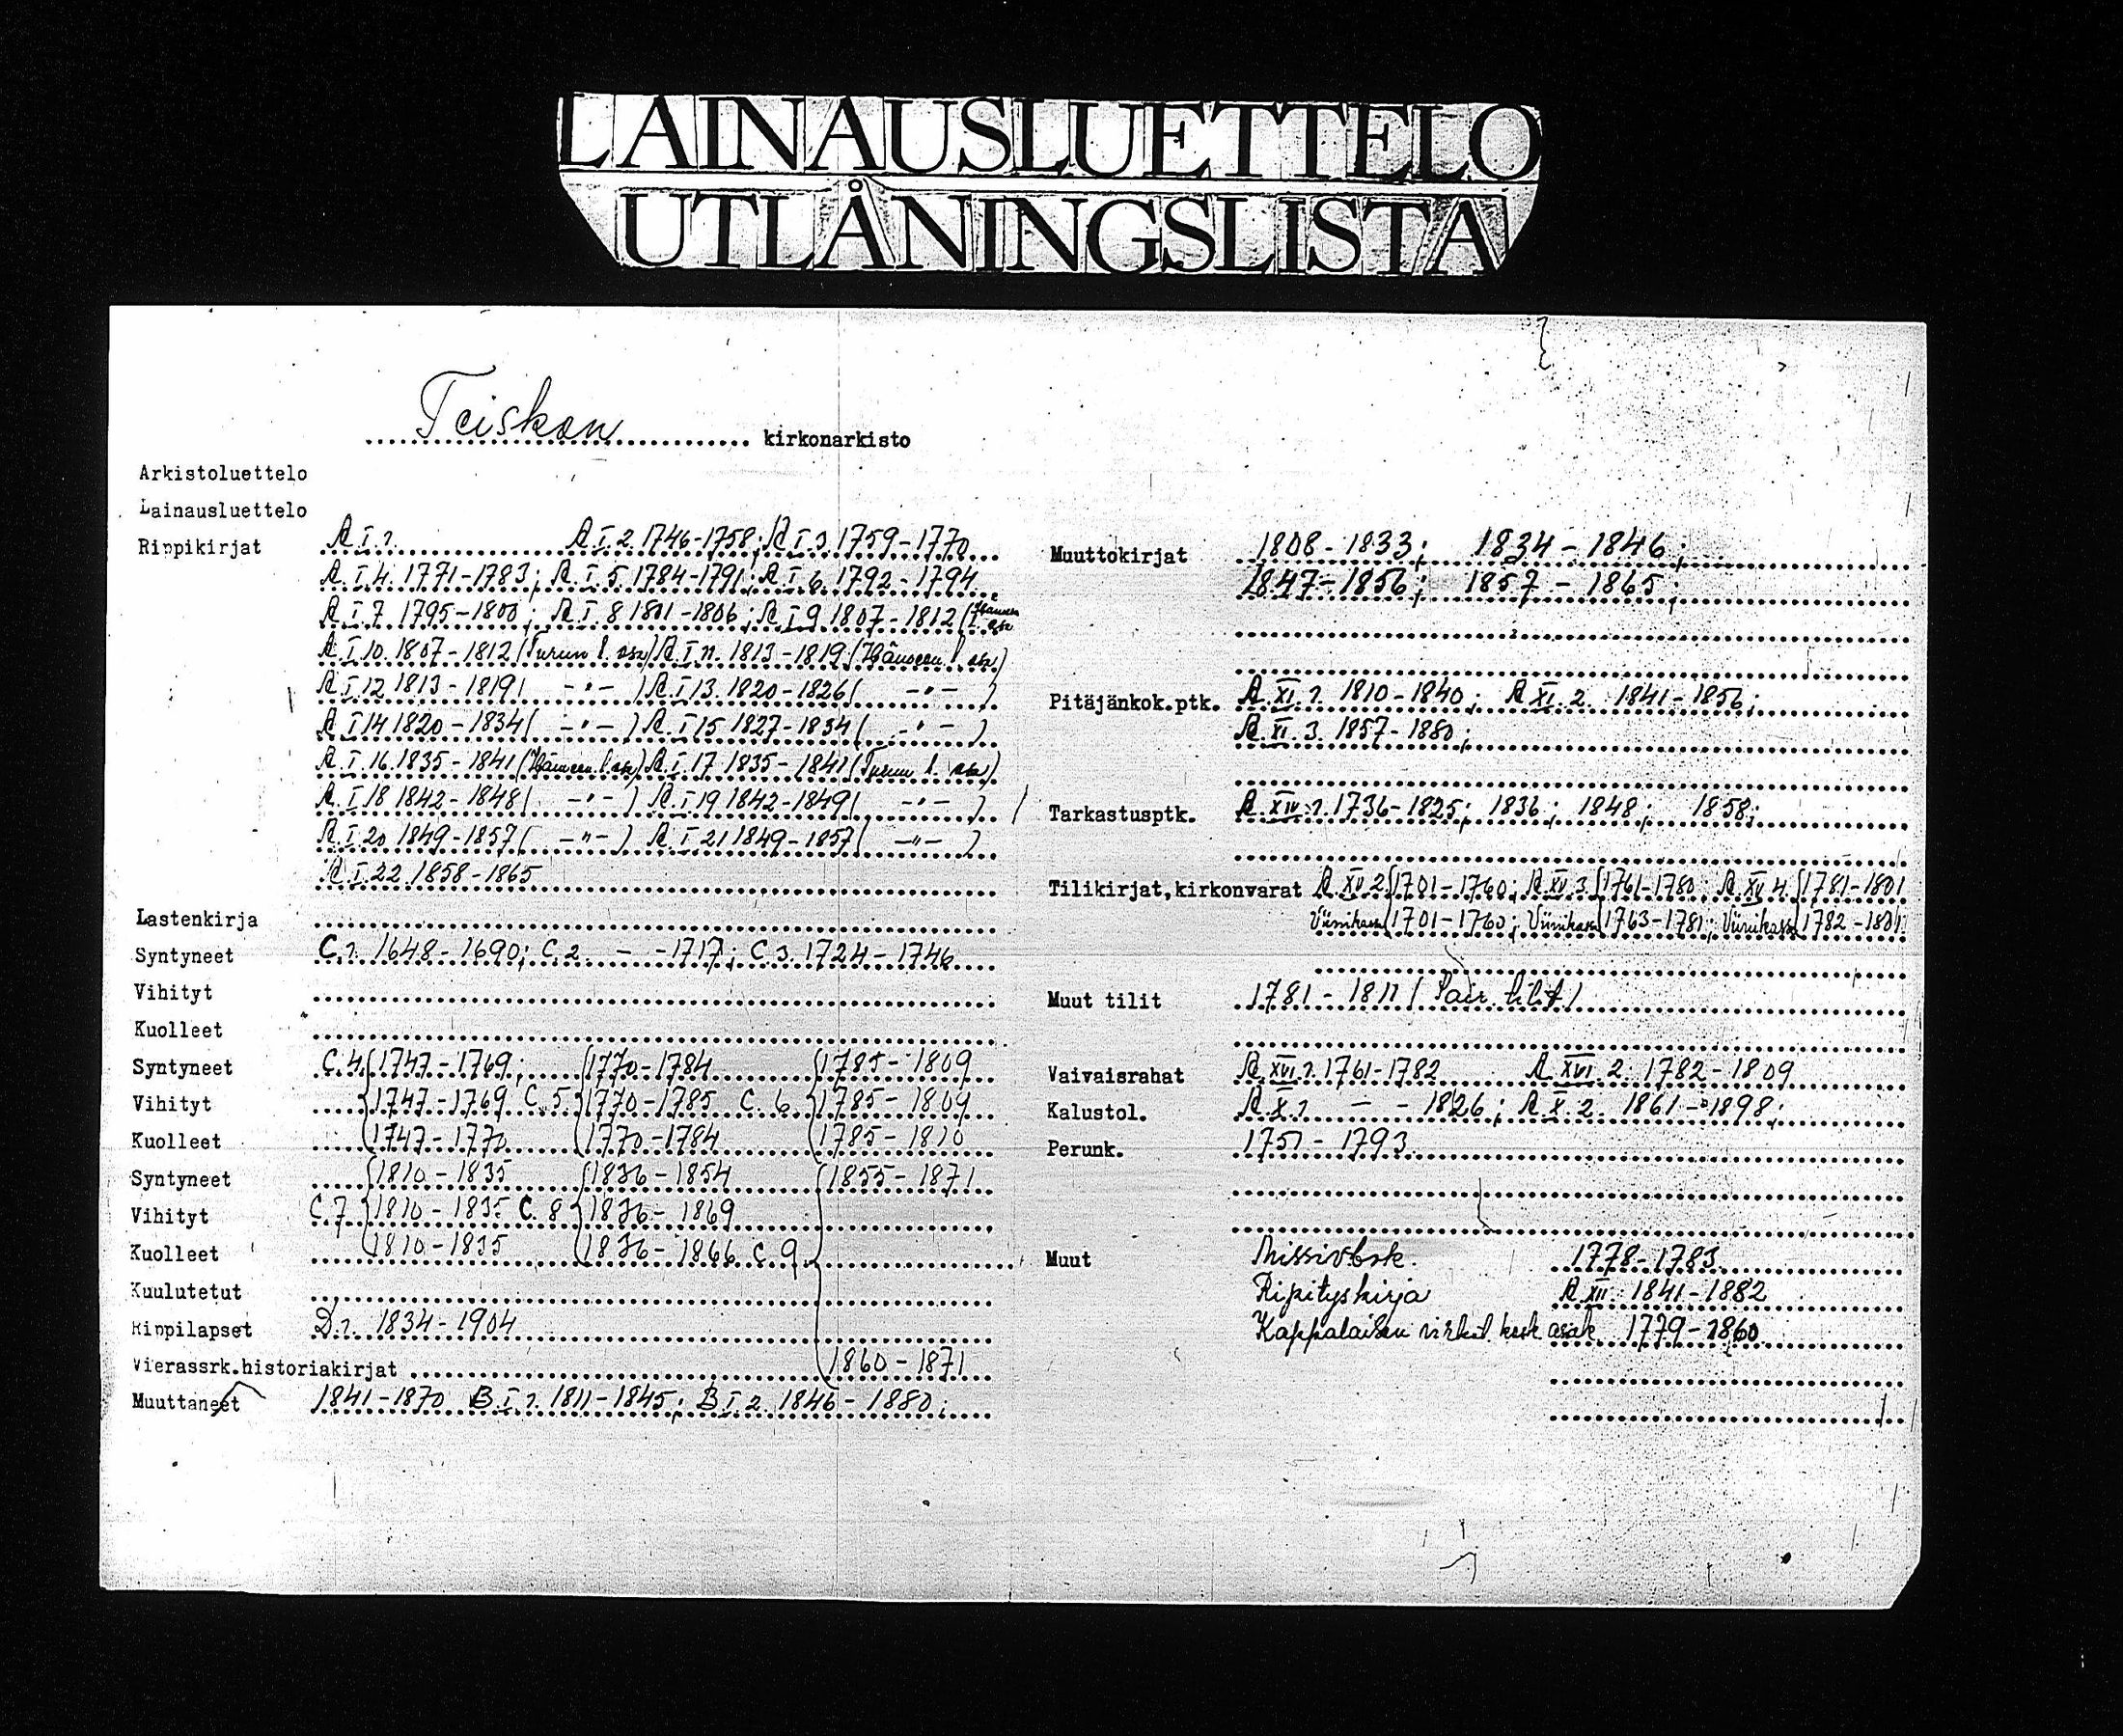 LAINAUSLUETTELO
UTLÅNINGSLISTA
Teiskon kirkonarkisto
Arkistoluettelo
Lainausluettelo
Rippikirjat A I.1. A I.2. 1746-1758; A I.3 1759-1770
A.I.4. 1771-1783; A.I.5. 1784-1791; A I 6. 1792-1794
A I 7 1795-1800; A I 8 1801-1806; A I 9 1807-1812 (Hämeen l. osa
A I 10. 1807-1812 (Turun l. osa) A I 11. 1813-1819 (Hämeen l. osa)
A I 12 1813-1819 ( -"- ) A I 13. 1820-1826 ( -"- )
A I 14 1820-1834 ( -"- ) A I 15 1827-1834 ( -"- )
A I 16. 1835-1841 (Hämeen l. osa) A I 17 1835-1841 (Turun l. osa)
A I 18 1842-1848 ( -"- ) A I 19 1842-1849 ( -"- )
A I 20 1849-1857 ( -"- ) A I 21 1849-1857 ( -"- )
A I 22 1858-1865
Lastenkirja
Syntyneet C.1. 1648-1690; C.2 - -1717; C.3. 1724-1746
Vihityt
Kuolleet
Syntyneet C.4. 1747-1769; 1770-1784 1785-1809
Vihityt 1747-1769 C.5. 1770-1785 C.6. 1785-1809
Kuolleet 1747-1770 1770-1784 1785-1810
Syntyneet 1810-1835 1836-1854 1855-1871
Vihityt C.7 1810-1835 C.8 1836-1869
Kuolleet 1810-1835 1836-1866 C.9
Kuulutetut
Rippilapset D.1. 1834-1904
Vierassrk.historiakirjat 1860-1871
Muuttaneet 1841-1870 B I.1. 1811-1845; B I.2. 1846-1880;
Muuttokirjat 1808-1833; 1834-1846;
1847-1856; 1857-1865;
Pitäjänkok.ptk. A XI.1. 1810-1840; A XI.2. 1841-1856;
A XI.3. 1857-1880;
Tarkastusptk. A XIV.1. 1736-1825; 1836; 1848; 1858;
Tilikirjat,kirkonvarat A XV 2. 1701-1760; A XV 3. 1761-1780; A XV 4. 1781-1801
Viinikassa 1701-1760; Viinikassa 1763-1781; Viinikassa 1782-1801
Muut tilit 1781-1811 ( tilit)
Vaivaisrahat A XVI.1. 1761-1782 A XVI 2. 1782-1809
Kalustol. A X.1 - - 1826; A X.2. 1861-1898;
Perunk. 1751-1793
Muut Missivbok. 1778-1783
Ripityskirja A XII. 1841-1882
Kappalaisen virkat. kosk. asiak. 1779-1860